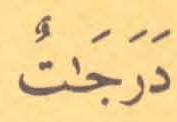 دَرَجَاتٌ